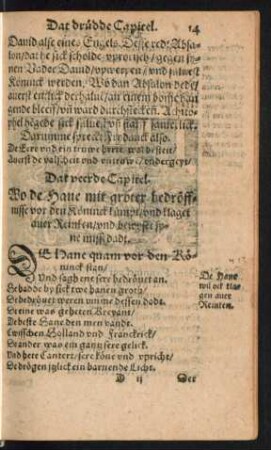 Dat drüdde Capitel. 14
Dauid alse eines Engels. Desse redt Absa-
lon/dat he sick scholde vprörisch/ gegen sy-
nen Vader Dauid/vpwerpen/ vnd süluest
Köninck werden. Wo dan Absalon dessel
auerst entlick derhaluen/an einem bohme han-
gende bleeff/vn ward dorchstecken.
hedde sick sülues
Darumme sprect Freidanck also.
De Eere vnd ein truwe
Auerst de valscheit vnd vntruwe/vndergeyt
Dat veerde Capitel.
Wo de Hane mit groter bedröff-
nisse vor den Köninck kumpt/vnd klaget
auer Reinken/vnd bewyset sy-
ne mißdadt.
DE Hane quam vor den Kö-
ninck stan/
Vnd sagh ene sere bedröuet an.
He hadde by sick twe hanen groth/
De bedröuet weren vmme dessen dodt.
De eine was geheten Kreyant/
De beste Hane den men vandt.
Twisschen Holland vnd Franckrick/
De ander was em gantz sere gelick.
Vnd hete Cantert/sere köne vnd vpricht/
Se drögen ytlick ein barnende Licht.
De Hane
wil ock kla-
gen auer
Reinken.
D ij Der